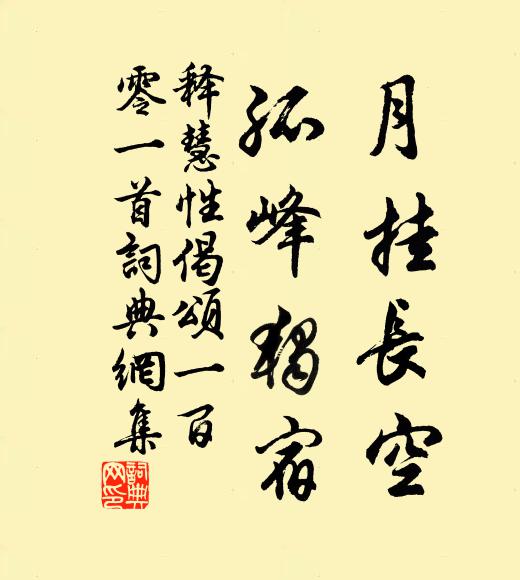 月挂長空
孤峰獨宿
释慧性偈頌一百
零一首詞典網集
詞典網印